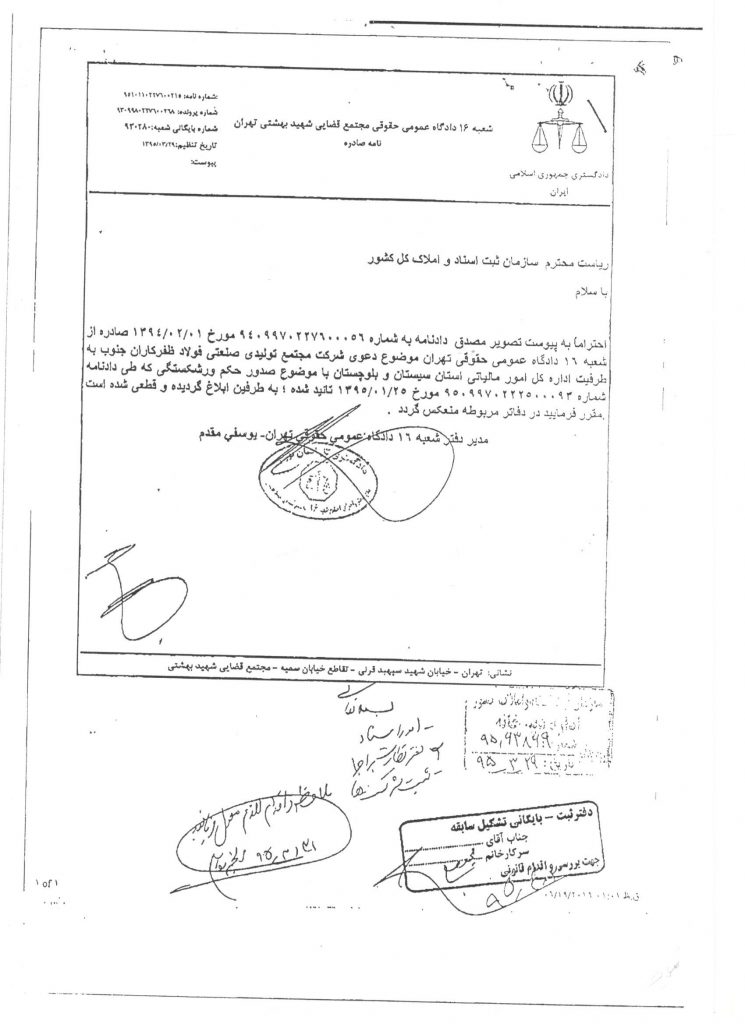 شعبه ۱۶ دادگاه عمومی حقوقی مجتمع قضایی شهید بهشتی تهران
نامه صادره
شماره نامه: ۹۵۱۰۱۱۰۲۲۷۶۰۰۲۱۵
شماره پرونده: ۹۳۰۹۹۸۰۲۲۷۶۰۰۲۶۸
شماره بایگانی شعبه: ۹۳۰۲۸۰
تاریخ تنظیم: ۱۳۹۵/۰۳/۲۹
پیوست:
دادگستری جمهوری اسلامی
ایران
ریاست محترم سازمان ثبت اسناد و املاک کل کشور
با سلام
احتراماً به پیوست تصویر مصدق دادنامه به شماره ۹۴۰۹۹۷۰۲۲۷۶۰۰۰۵۶ مورخ ۱۳۹۴/۰۲/۰۱ صادره از
شعبه ۱۶ دادگاه عمومی حقوقی تهران موضوع دعوی شرکت مجتمع تولیدی صنعتی فولاد ظفرکاران جنوب به
طرفیت اداره کل امور مالیاتی استان سیستان و بلوچستان با موضوع صدور حکم ورشکستگی که طی دادنامه
شماره ۹۵۰۹۹۷۰۲۲۲۵۰۰۰۹۳ مورخ ۱۳۹۵/۰۱/۲۵ تائید شده ؛ به طرفین ابلاغ گردیده و قطعی شده است
.مقرر فرمایید در دفاتر مربوطه منعکس گردد .
مدیر دفتر شعبه ۱۶ دادگاه عمومی حقوقی تهران- یوسفی مقدم
نشانی: تهران - خیابان شهید سپهبد قرنی - تقاطع خیابان سمیه - مجتمع قضایی شهید بهشتی
بسمه تعالی
- امور اسناد
- ثبت شرکت ها
شماره: ۹۵,۹۳۸۶۹
تاریخ: ۹۵ ۳ ۲۹
۹۵/۳/۳۱
دفتر ثبت - بایگانی تشکیل سابقه
جناب آقای
سرکار خانم
جهت بررسی و اقدام قانونی
1 of 1